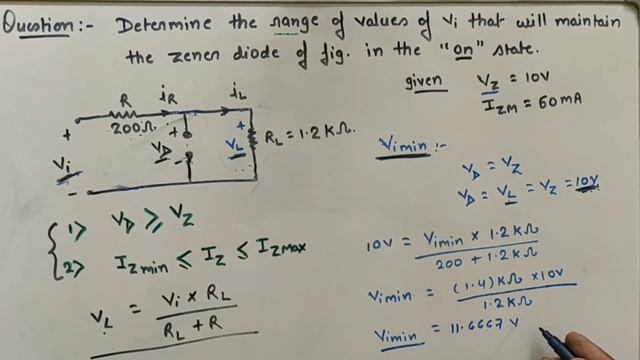 Question:- Determine the range of values of Vi that will maintain
the zener diode of fig. in the "on" state.
given VZ = 10V
IZM = 60mA
R iR iL
200Ω
+ + +
Vi VD VL RL = 1.2KΩ
- -
1> VD ≥ VZ
2> IZmin ≤ IZ ≤ IZmax
VL = Vi × RL
RL + R
Vimin :-
VD = VZ
VD = VL = VZ = 10V
10V = Vimin × 1.2KΩ
200 + 1.2KΩ
Vimin = (1.4)KΩ × 10V
1.2KΩ
Vimin = 11.6667 V